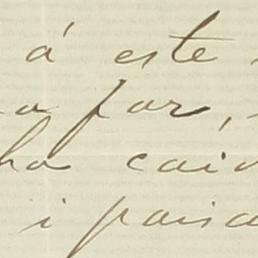 á este
a far,
ha caid
i paisa